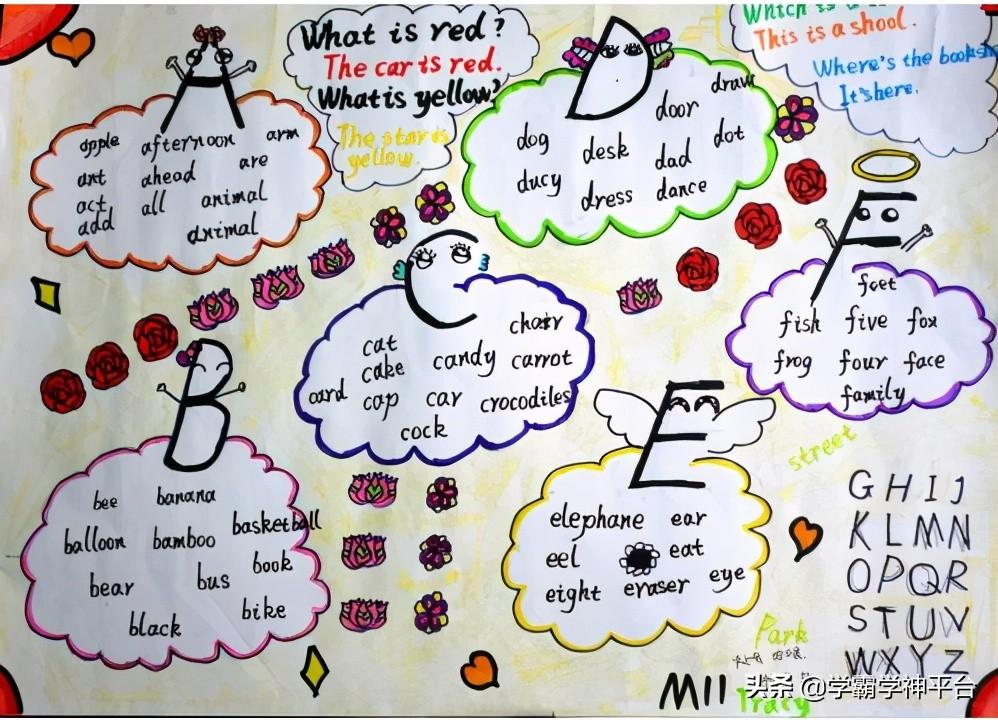 What is red?
The car is red.
What is yellow?
The star is
yellow.
Which is a
This is a shool.
Where's the booksh
It's here.
A
apple afternoon arm
ant ahead are
act all animal
add animal
D
draw
dog door
desk dad dot
ducy dress dance
F
feet
fish five fox
frog four face
family
C
cat chair
cake candy carrot
card cap car crocodiles
cock
B
bee banana
balloon bamboo basketball
bear bus book
black bike
E
elephane ear
eel eat
eight eraser eye
street
G H I J
K L M N
O P Q R
S T U V
W X Y Z
Park
M11
Tracy
头条 @学霸学神平台